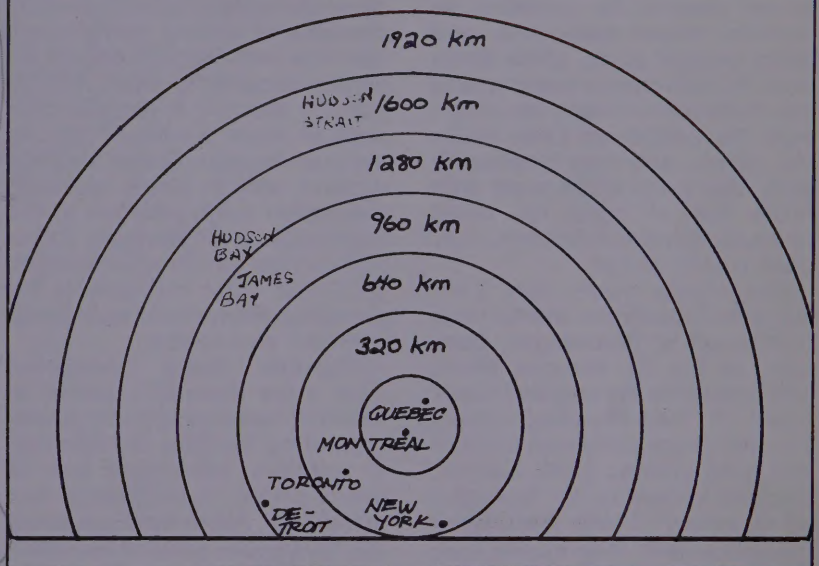 1920 km
HUDSON 1600 km
STRAIT
1280 km
960 km
HUDSON
BAY
JAMES
BAY
640 km
320 km
QUEBEC
MONTREAL
TORONTO
DE-
TROIT
NEW
YORK